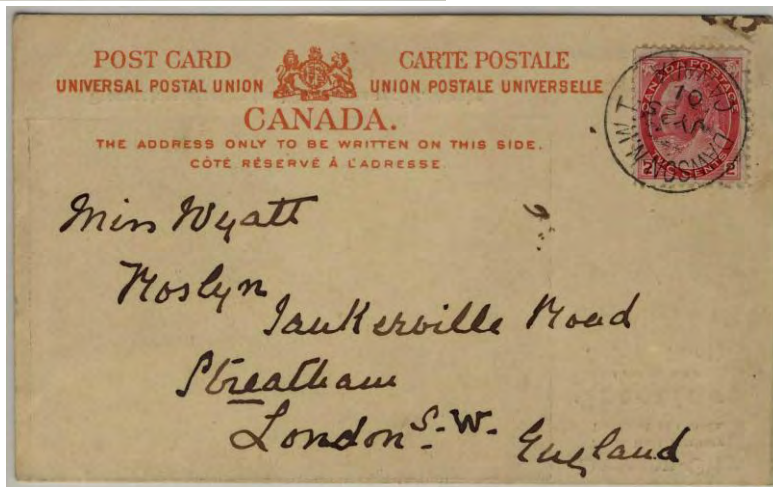 POST CARD CARTE POSTALE
UNIVERSAL POSTAL UNION UNION POSTALE UNIVERSELLE
CANADA.
THE ADDRESS ONLY TO BE WRITTEN ON THIS SIDE.
CÔTÉ RÉSERVÉ À L'ADRESSE
CANADA POSTAGE
2 CENTS 2
DAWSON N.W.T.
CANADA
01
Miss Wyatt
Roslyn
Tankerville Road
Streatham
London S.W. England